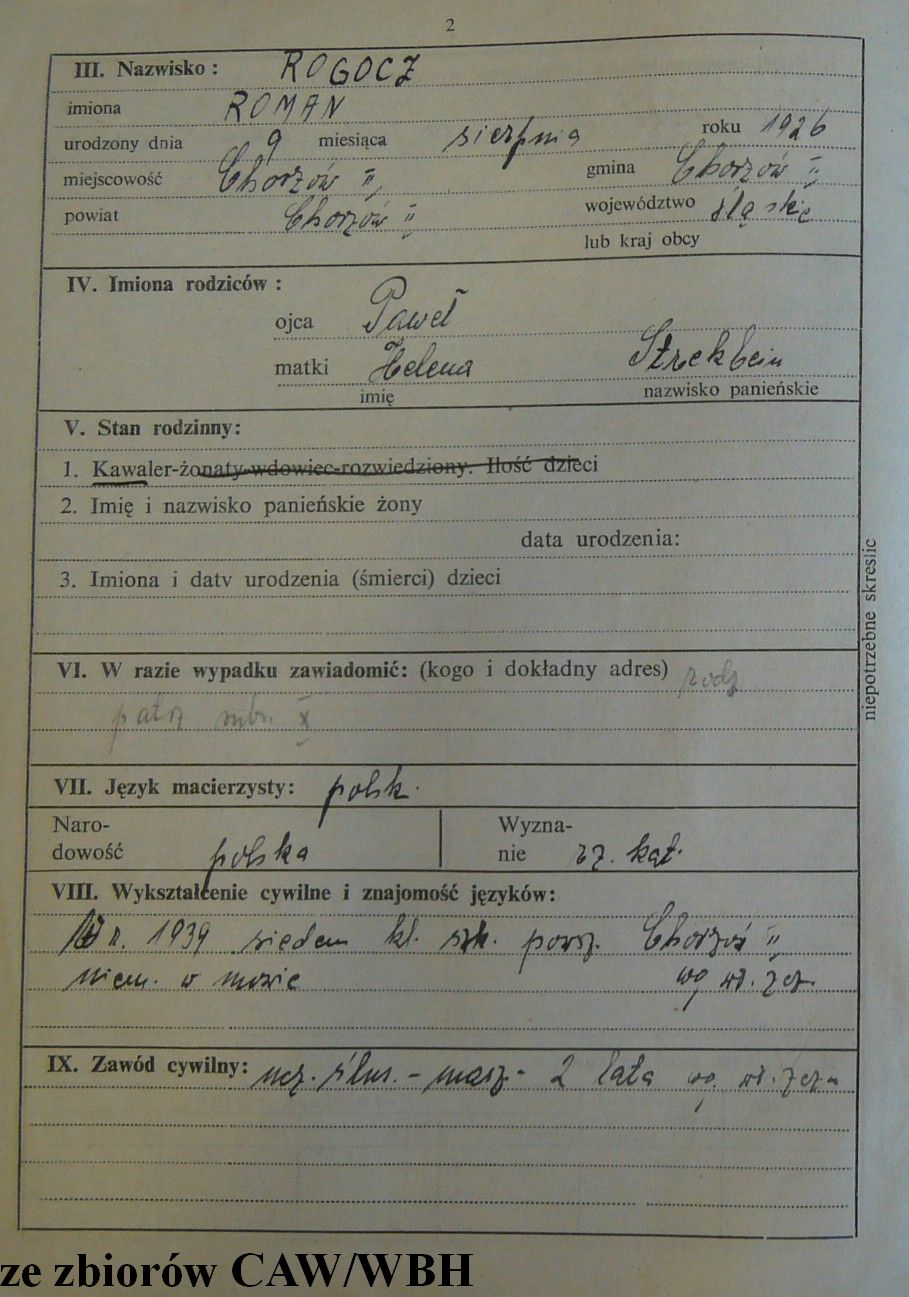 2
III. Nazwisko: ROGOCZ
imiona ROMAN
urodzony dnia 9 miesiąca sierpnia roku 1926
miejscowość Chorzów II gmina Chorzów II
powiat Chorzów II województwo śląskie
lub kraj obcy
IV. Imiona rodziców:
ojca Paweł
matki Helena Strzekbein
imię nazwisko panieńskie
V. Stan rodzinny:
1. Kawaler-żonaty-wdowiec-rozwiedziony. Ilość dzieci
2. Imię i nazwisko panieńskie żony
data urodzenia:
3. Imiona i daty urodzenia (śmierci) dzieci
niepotrzebne skreślic
VI. W razie wypadku zawiadomić: (kogo i dokładny adres) rodz
patrz rubr. X
VII. Język macierzysty: polsk.
Naro- Wyzna-
dowość polska nie rz. kat.
VIII. Wykształcenie cywilne i znajomość języków:
W r. 1939 siedem kl. szk. powsz. Chorzów II
niem. w mowie wg wł. zez.
IX. Zawód cywilny: ucz. ślus. - masz - 2 lata wg. wł. zezn
ze zbiorów CAW/WBH